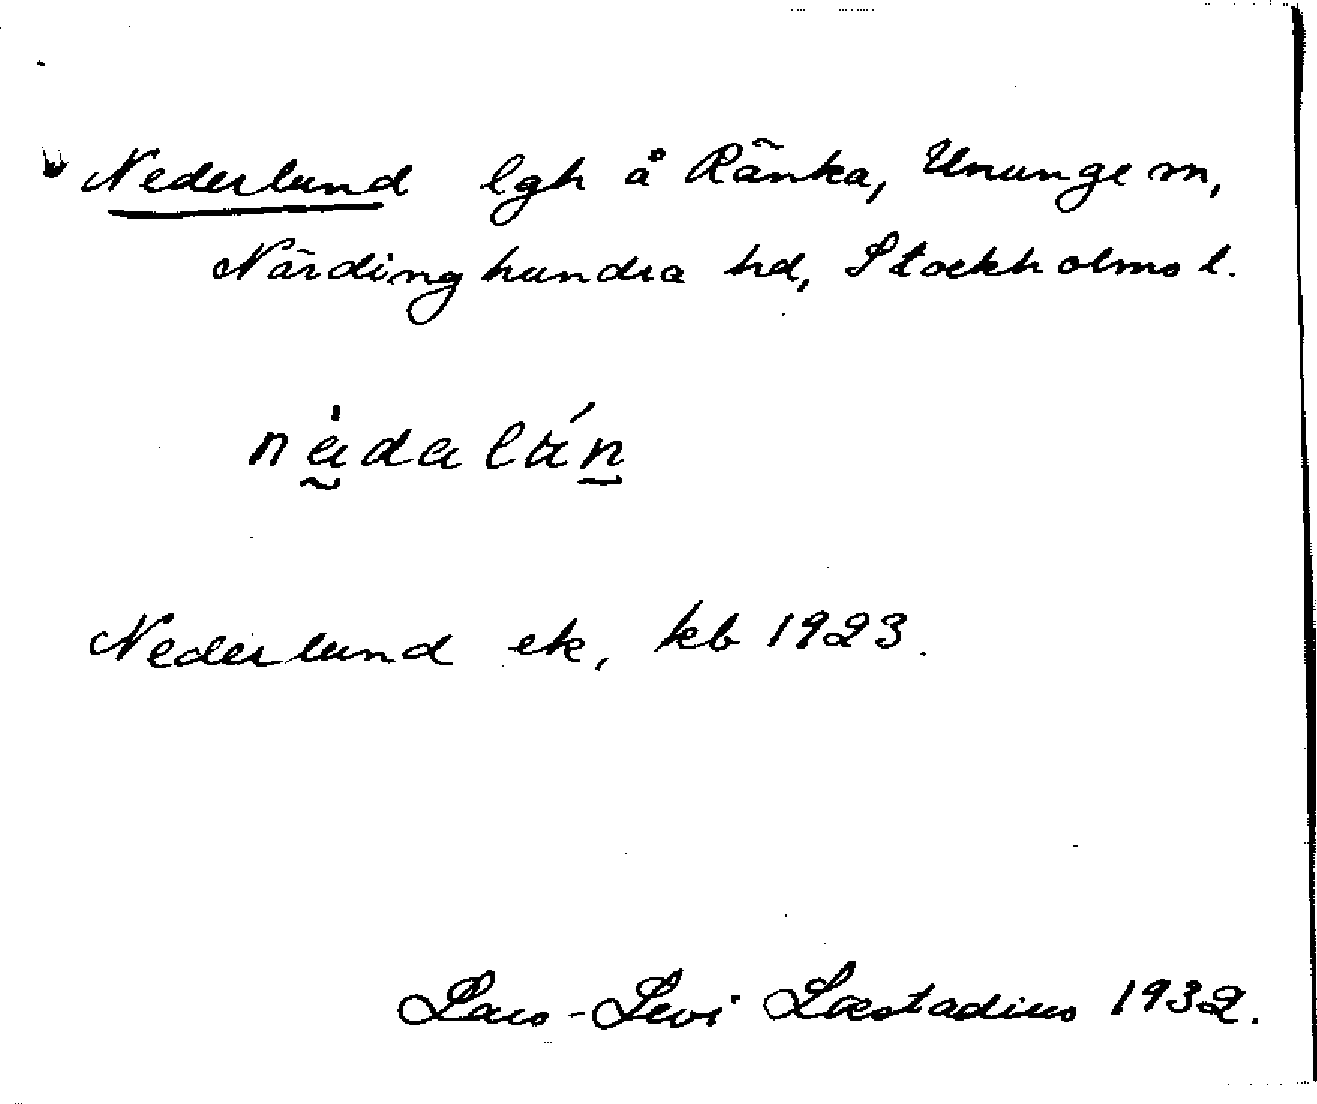 Nederlund lgh å Ränka, Ununge sn,
Närdinghundra hd, Stockholms l.
nädalún
Nederlund ek, kb 1923.
Lars-Levi Læstadius 1932.